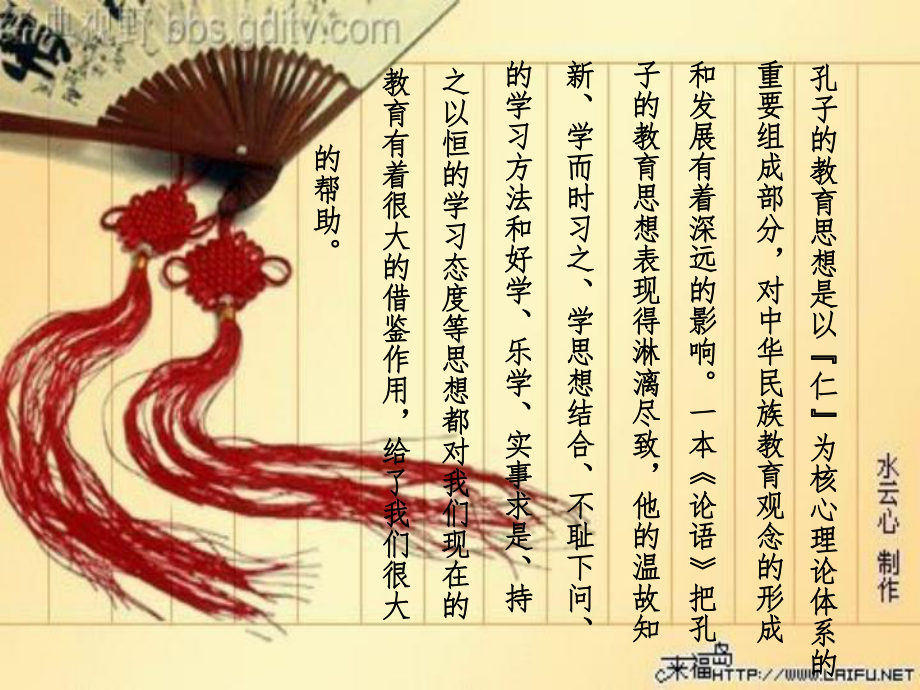 经典视野 bbs.gditv.com
孔子的教育思想是以『仁』为核心理论体系的
重要组成部分，对中华民族教育观念的形成
和发展有着深远的影响。一本《论语》把孔
子的教育思想表现得淋漓尽致，他的温故知
新、学而时习之、学思想结合、不耻下问、
的学习方法和好学、乐学、实事求是、持
之以恒的学习态度等思想都对我们现在的
教育有着很大的借鉴作用，给了我们很大
的帮助。
水云心 制作
来福岛
HTTP://WWW.LAIFU.NET